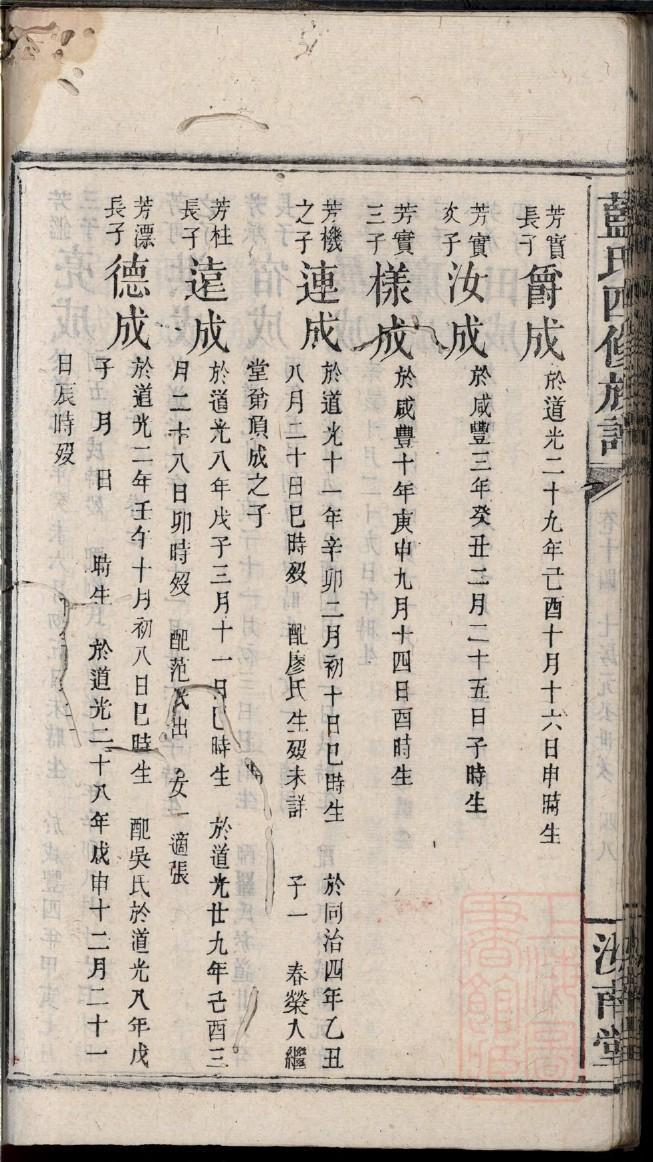 藍氏四修族譜
汝南堂
芳實長子
爵成
於道光二十九年己酉十月十六日申時生
芳實次子
汝成
於咸豐三年癸丑二月二十五日子時生
芳實三子
樣成
於咸豐十年庚申九月十四日酉時生
芳機之子
連成
於道光十一年辛卯二月初十日巳時生 於同治四年乙丑
八月二十日巳時歿 配廖氏生歿未詳 子一 春榮入繼
堂弟頂成之子
芳桂長子
遠成
於道光八年戊子三月十一日巳時生 於道光廿九年己酉三
月二十八日卯時歿 配范氏出 女一適張
芳漂長子
德成
於道光二年壬午十月初八日巳時生 配吳氏於道光八年戊
子 月 日 時生 於道光二十八年戊申十二月二十一
日辰時歿